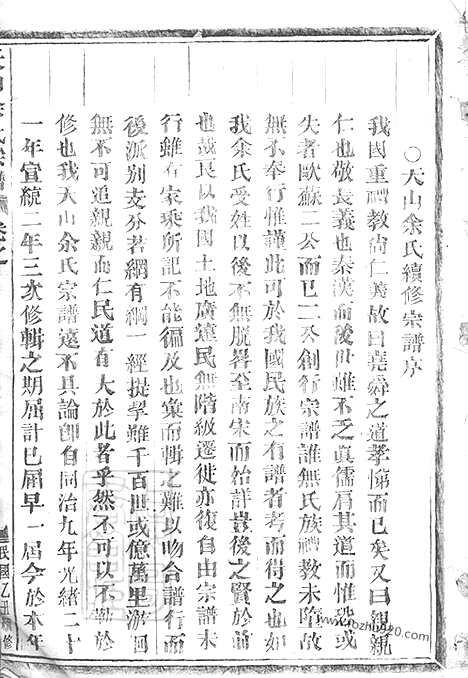 ○大山余氏續修宗譜序
我國重禮教尚仁義故曰堯舜之道孝悌而已矣又曰親親
仁也敬長義也秦漢而後世雖不乏真儒肩其道而惟恐或
失者歐蘇二公而已二公創行宗譜誰無氏族禮教未隋故
無不奉行惟謹此可於我國民族之有譜者考而得之也何
我余氏受姓以後不無脫畧至南宋而始詳豈後之賢於前
也哉良以我國土地廣遠民無階級遷徙亦復自由宗譜未
行雖有家乘所記不能徧及也彙而輯之難以吻合譜行而
後派別支分若網有綱一經提挈雖千百世或億萬里游洄
無不可追親親而仁民道有大於此者乎然不可以不勤於
修也我大山余氏宗譜遠不具論卽自同治九年光緒二十
一年宣統二年三次修輯之期屈計已屆早一屆今於本年
民國乙丑 修
www.jpshu20.com